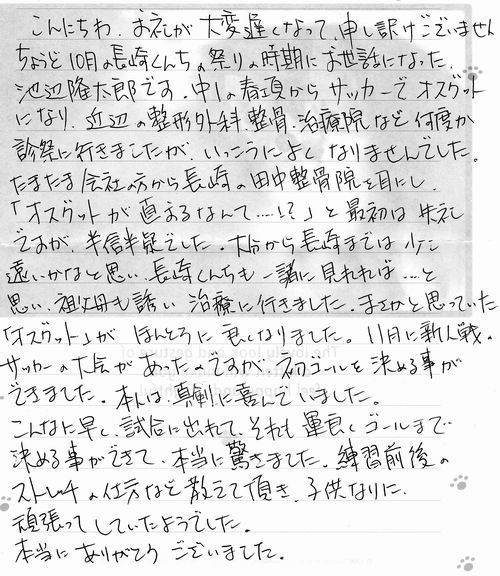 こんにちわ。お礼が大変遅くなって、申し訳けございません
ちょうど10月の長崎くんちの祭りの時期にお世話になった、
池辺隆太郎です。中1の春頃からサッカーでオスグット
になり、近辺の整形外科、整骨、治療院など何度か
診察に行きましたが、いっこうによくなりませんでした。
たまたま会社の方から長崎の田中整骨院を目にし、
「オスグットが直まるなんて……!?」と最初は失礼
ですが、半信半疑でした。大分から長崎までは少し
遠いかなと思い、長崎くんちも一諸に見れれば…と
思い、祖父母も誘い治療に行きました。まさかと思っていた
「オスグット」がほんとうに良くなりました。11月に新人戦、
サッカーの大会があったのですが、初ゴールを決める事が
できました。本人は、真剣に喜んでいました。
こんなに早く、試合に出れて、それも運良くゴールまで
決める事ができて、本当に驚きました。練習前後の
ストレッチの仕方など教えて頂き、子供なりに、
頑張ってしていたようでした。
本当にありがとうございました。